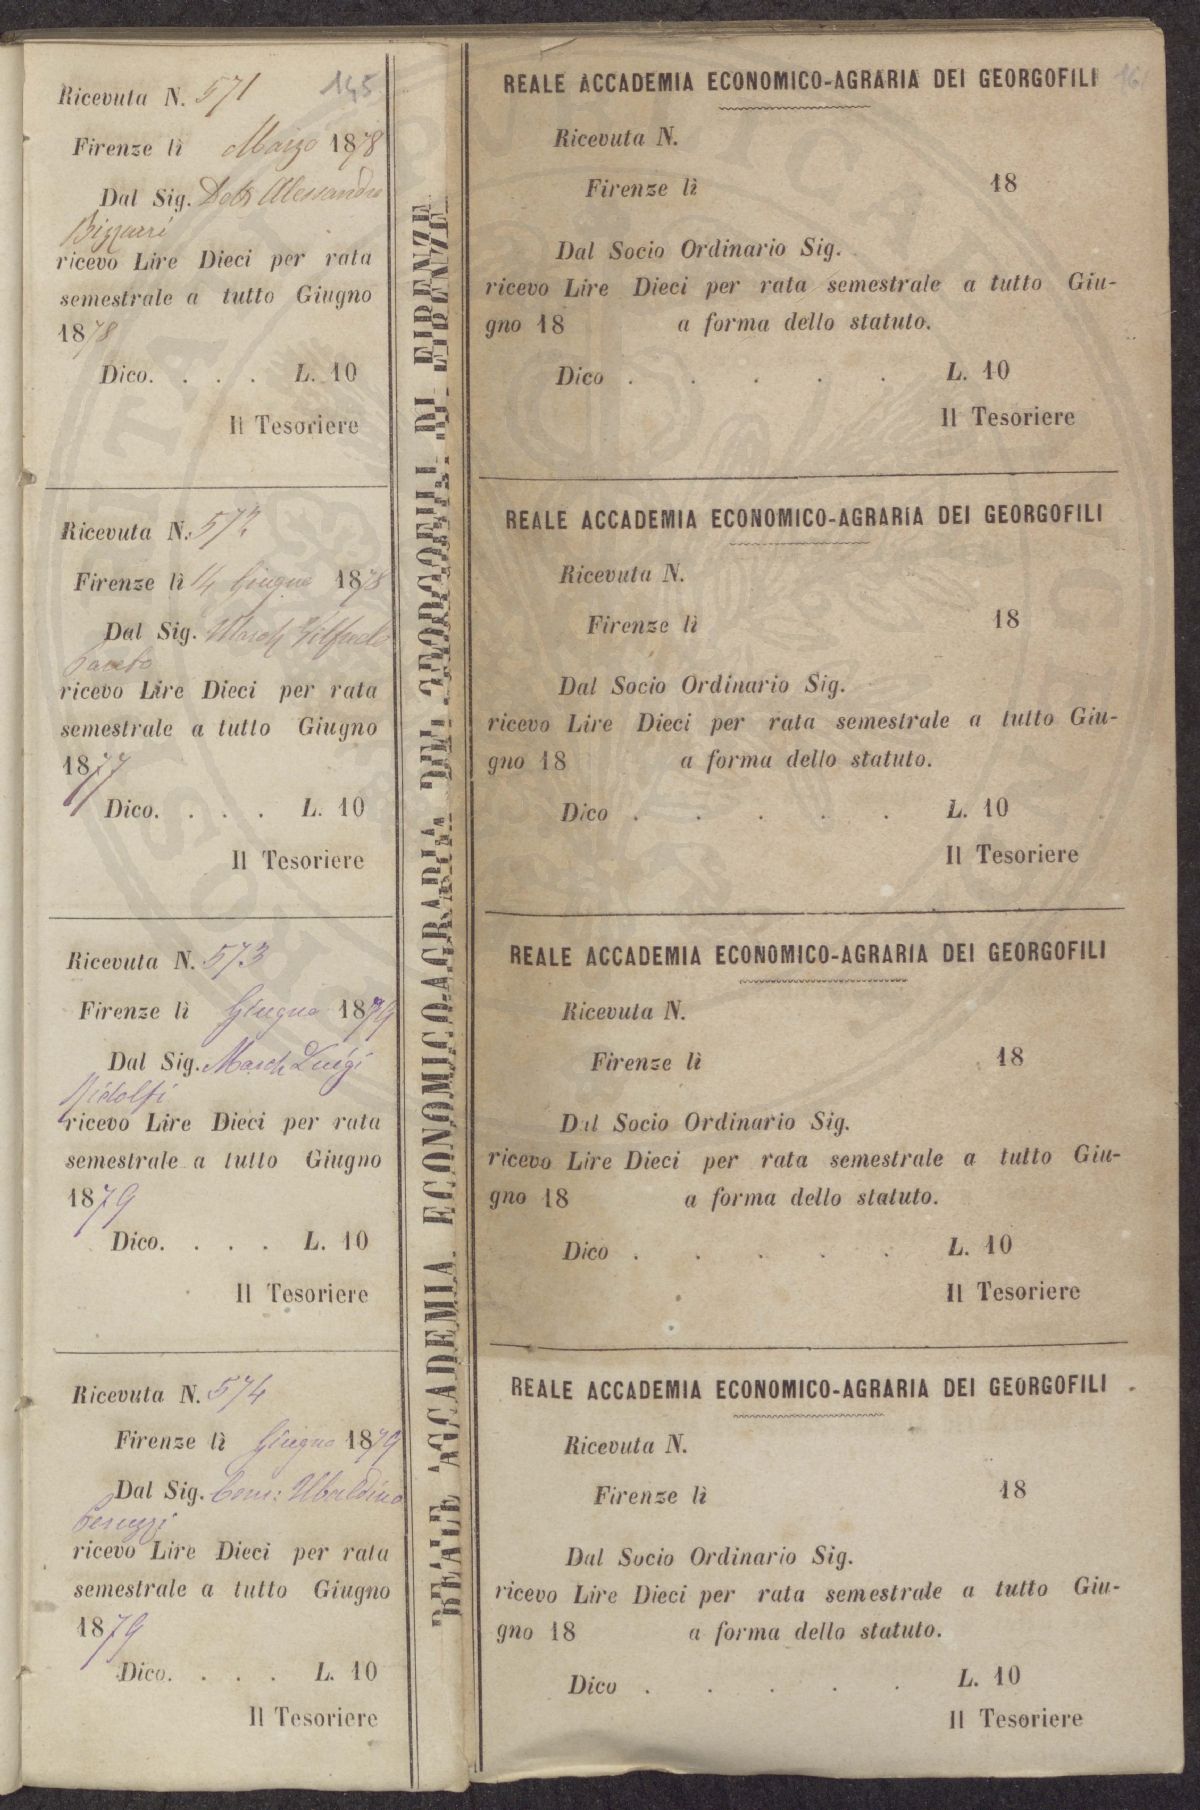 145
Ricevuta N. 571
Firenze lì Marzo 1878
Dal Sig. Dott Alessandro
Bizzarri
ricevo Lire Dieci per rata
semestrale a tutto Giugno
1878
Dico. . . . L. 10
Il Tesoriere
Ricevuta N. 572
Firenze lì 14 Giugno 1878
Dal Sig. March
ricevo Lire Dieci per rata
semestrale a tutto Giugno
1877
Dico. . . . L. 10
Il Tesoriere
Ricevuta N. 573
Firenze lì Giugno 1879
Dal Sig. March Luigi
Ridolfi
ricevo Lire Dieci per rata
semestrale a tutto Giugno
1879
Dico. . . . L. 10
Il Tesoriere
Ricevuta N. 574
Firenze lì Giugno 1879
Dal Sig. Com: Ubaldino
Peruzzi
ricevo Lire Dieci per rata
semestrale a tutto Giugno
1879
Dico. . . . L. 10
Il Tesoriere
REALE ACCADEMIA ECONOMICO-AGRARIA DEI GEORGOFILI DI FIRENZE
REALE ACCADEMIA ECONOMICO-AGRARIA DEI GEORGOFILI
Ricevuta N.
Firenze lì 18
Dal Socio Ordinario Sig.
ricevo Lire Dieci per rata semestrale a tutto Giu-
gno 18 a forma dello statuto.
Dico . . . . . L. 10
Il Tesoriere
REALE ACCADEMIA ECONOMICO-AGRARIA DEI GEORGOFILI
Ricevuta N.
Firenze lì 18
Dal Socio Ordinario Sig.
ricevo Lire Dieci per rata semestrale a tutto Giu-
gno 18 a forma dello statuto.
Dico . . . . . L. 10
Il Tesoriere
REALE ACCADEMIA ECONOMICO-AGRARIA DEI GEORGOFILI
Ricevuta N.
Firenze lì 18
Dal Socio Ordinario Sig.
ricevo Lire Dieci per rata semestrale a tutto Giu-
gno 18 a forma dello statuto.
Dico . . . . . L. 10
Il Tesoriere
REALE ACCADEMIA ECONOMICO-AGRARIA DEI GEORGOFILI
Ricevuta N.
Firenze lì 18
Dal Socio Ordinario Sig.
ricevo Lire Dieci per rata semestrale a tutto Giu-
gno 18 a forma dello statuto.
Dico . . . . . L. 10
Il Tesoriere